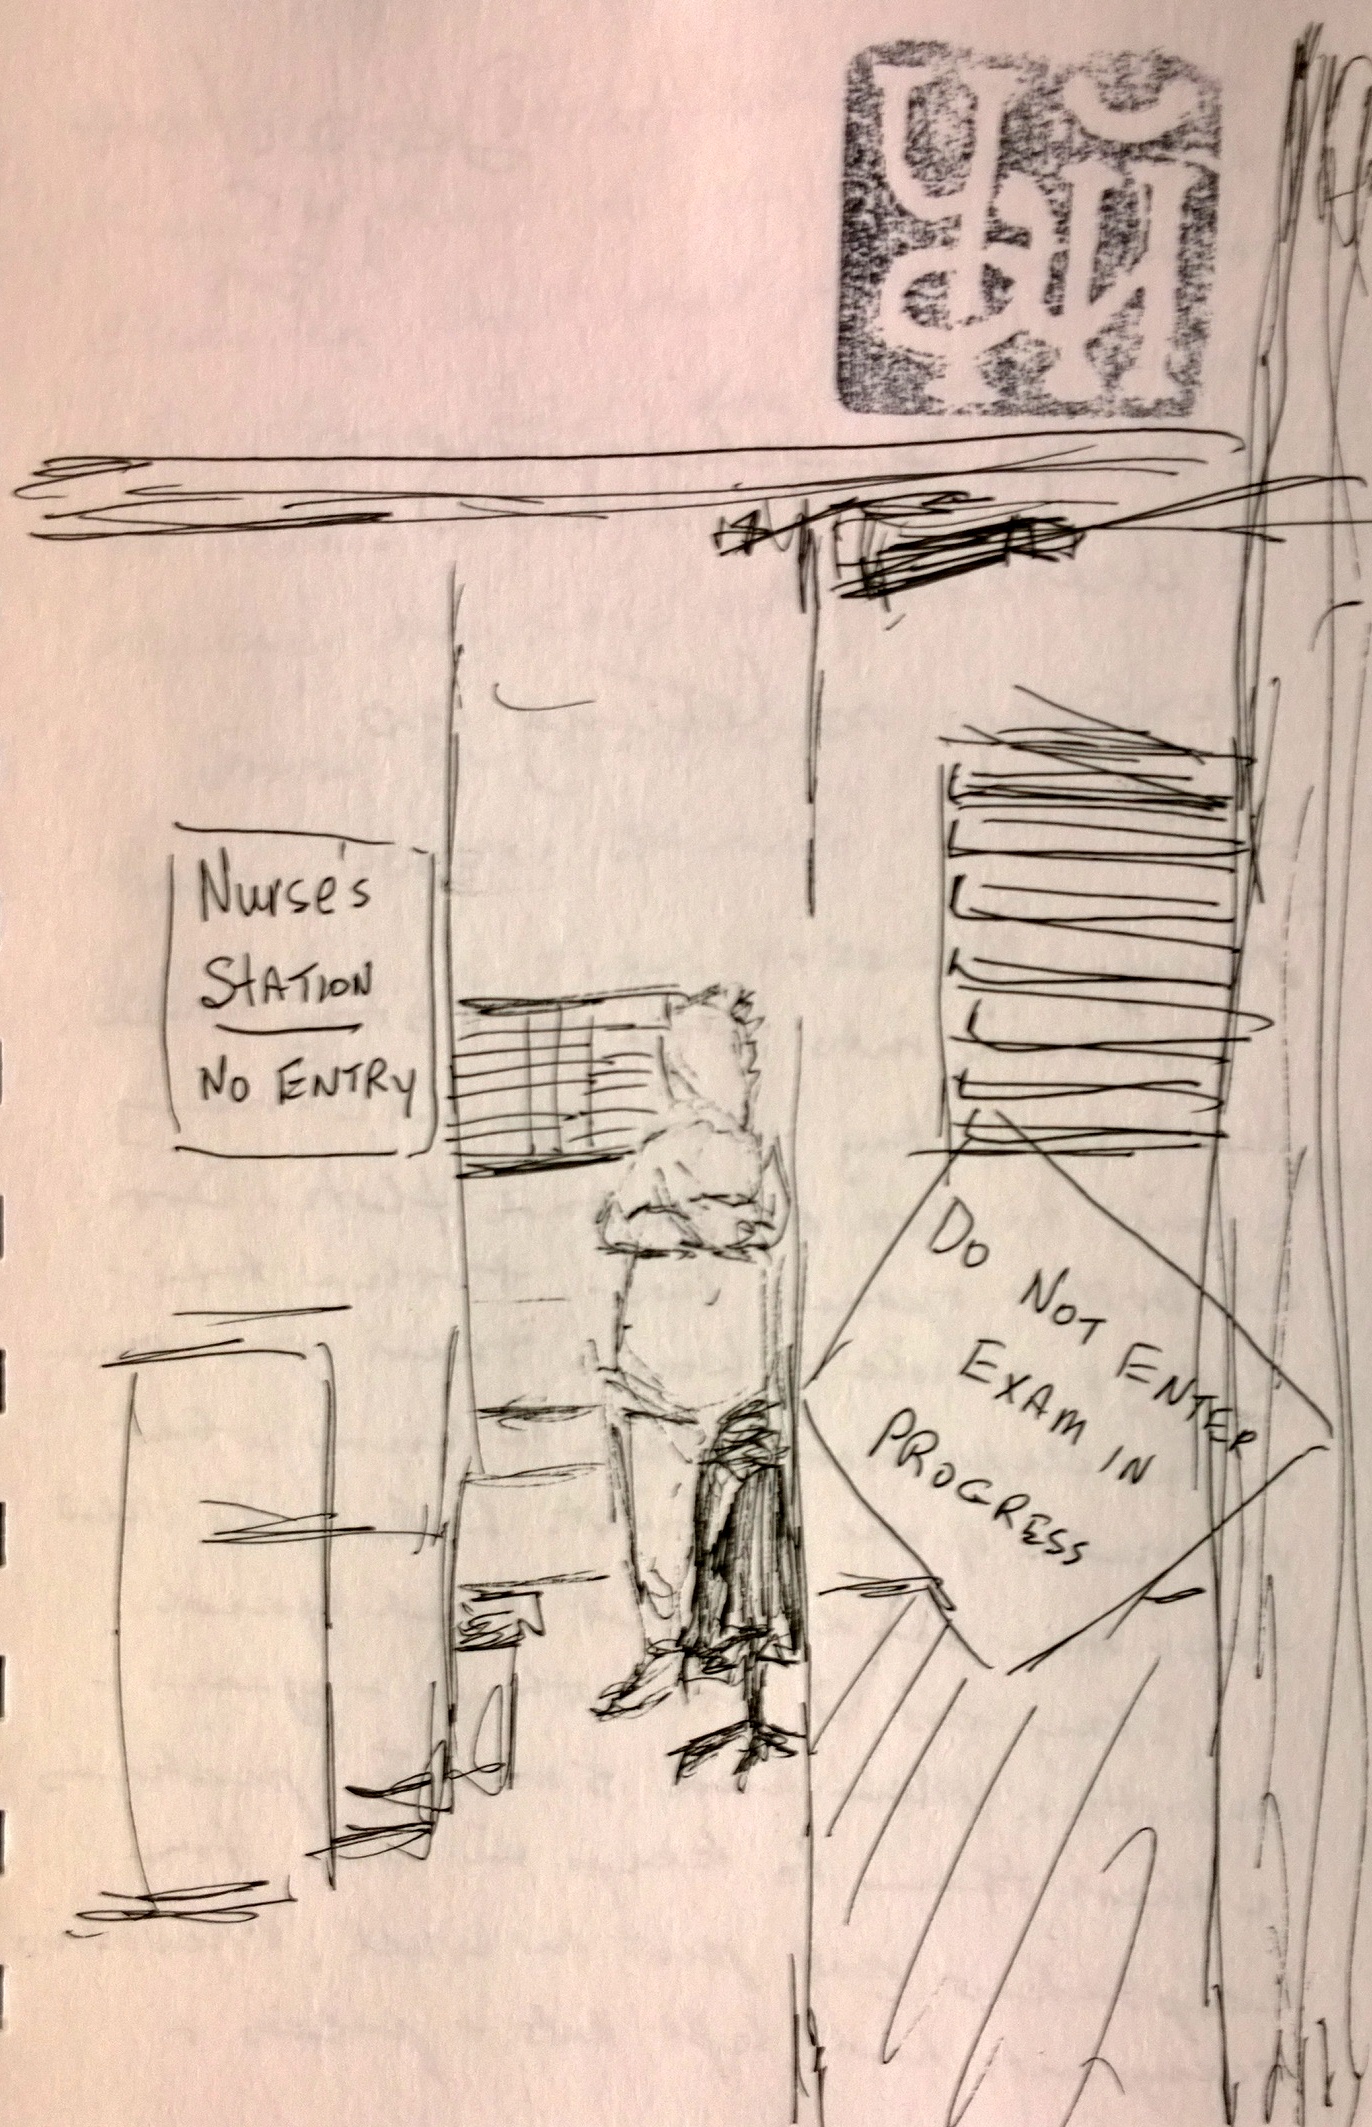 Nurse's
STATION
NO ENTRY
DO NOT ENTER
EXAM IN
PROGRESS